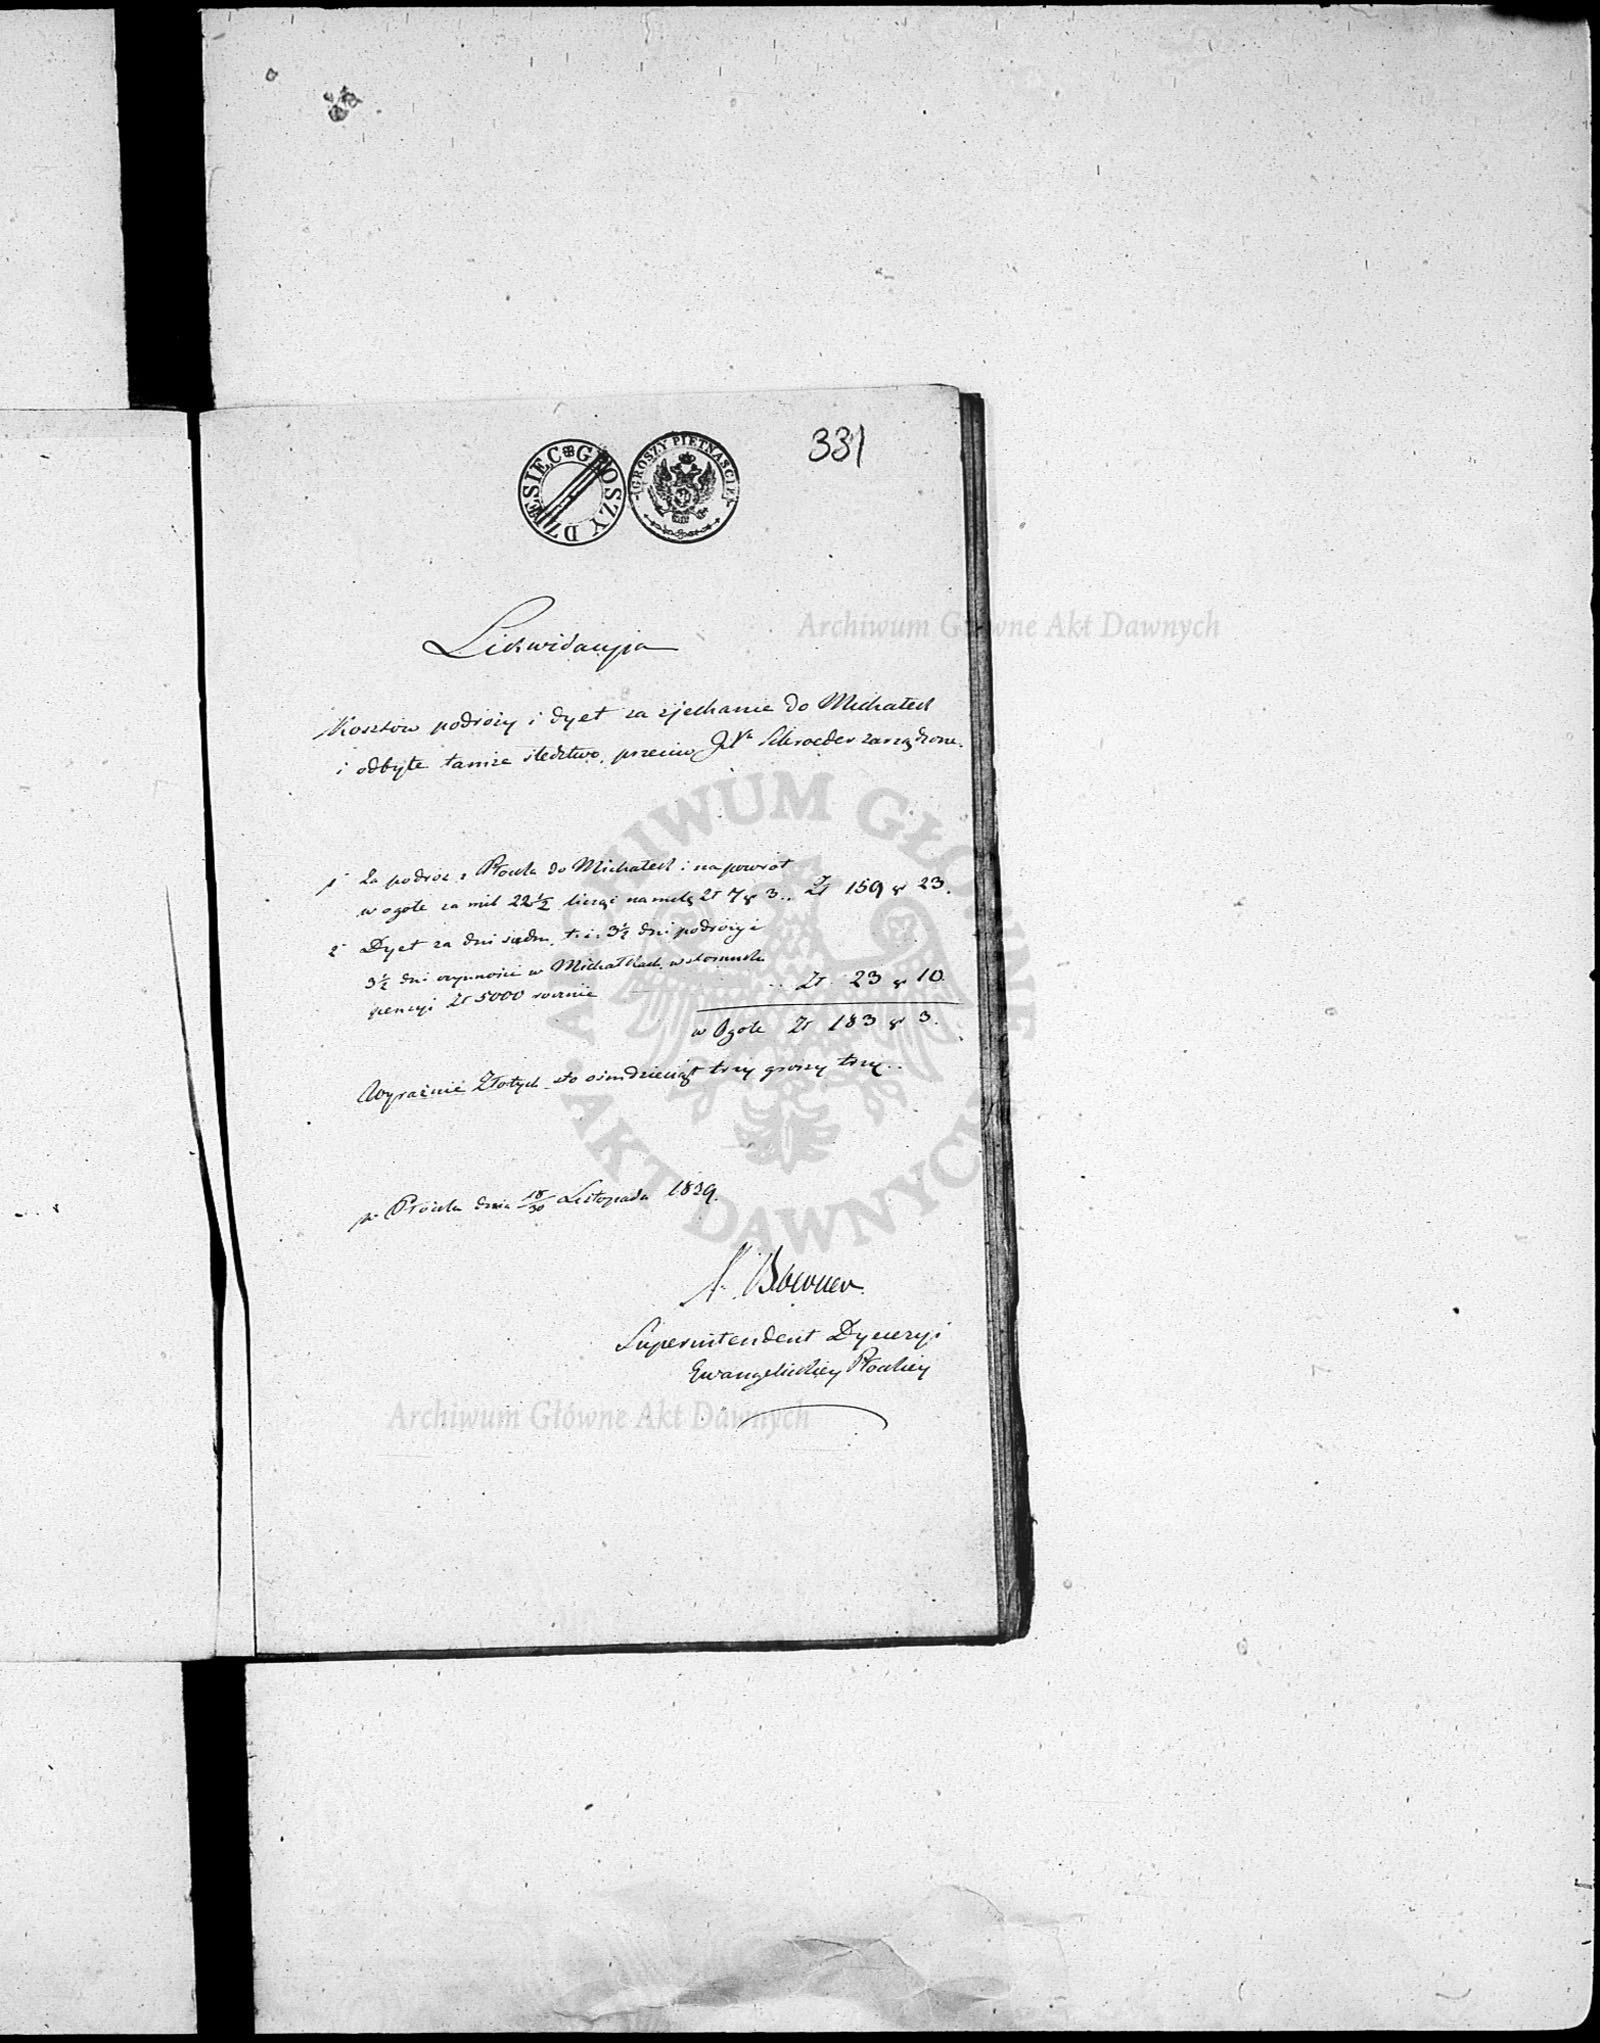 331
DZIESIĘĆ GROSZY
GROSZY PIĘTNAŚCIE
Likwidacyja
Kosztów podróży i dyet za zjechanie do Michałek
i odbyte tamże śledztwo, przeciw Schroeder zarządzone.
1° Za podróż z Płocka do Michałek i na powrót
w ogóle za mil 22 1/2 licząc na milę Zł 7 gr 3 .. Zł 159 gr 23.
2° Dyet za dni siedm, t. i. 3 1/2 dni podróży i
3 1/2 dni czynności w Michałkach, w stosunku
pensyi Zł 5000 rocznie .. Zł 23 gr 10.
w Ogóle Zł 183 gr 3.
Wyraźnie Złotych sto ośmdziesiąt trzy groszy trzy..
w Płocku dnia 18/30 Listopada 1839.
Superintendent Dyecezyi
Ewangelickiey Płockiey
Archiwum Główne Akt Dawnych
ARCHIWUM GŁÓWNE AKT DAWNYCH
Archiwum Główne Akt Dawnych